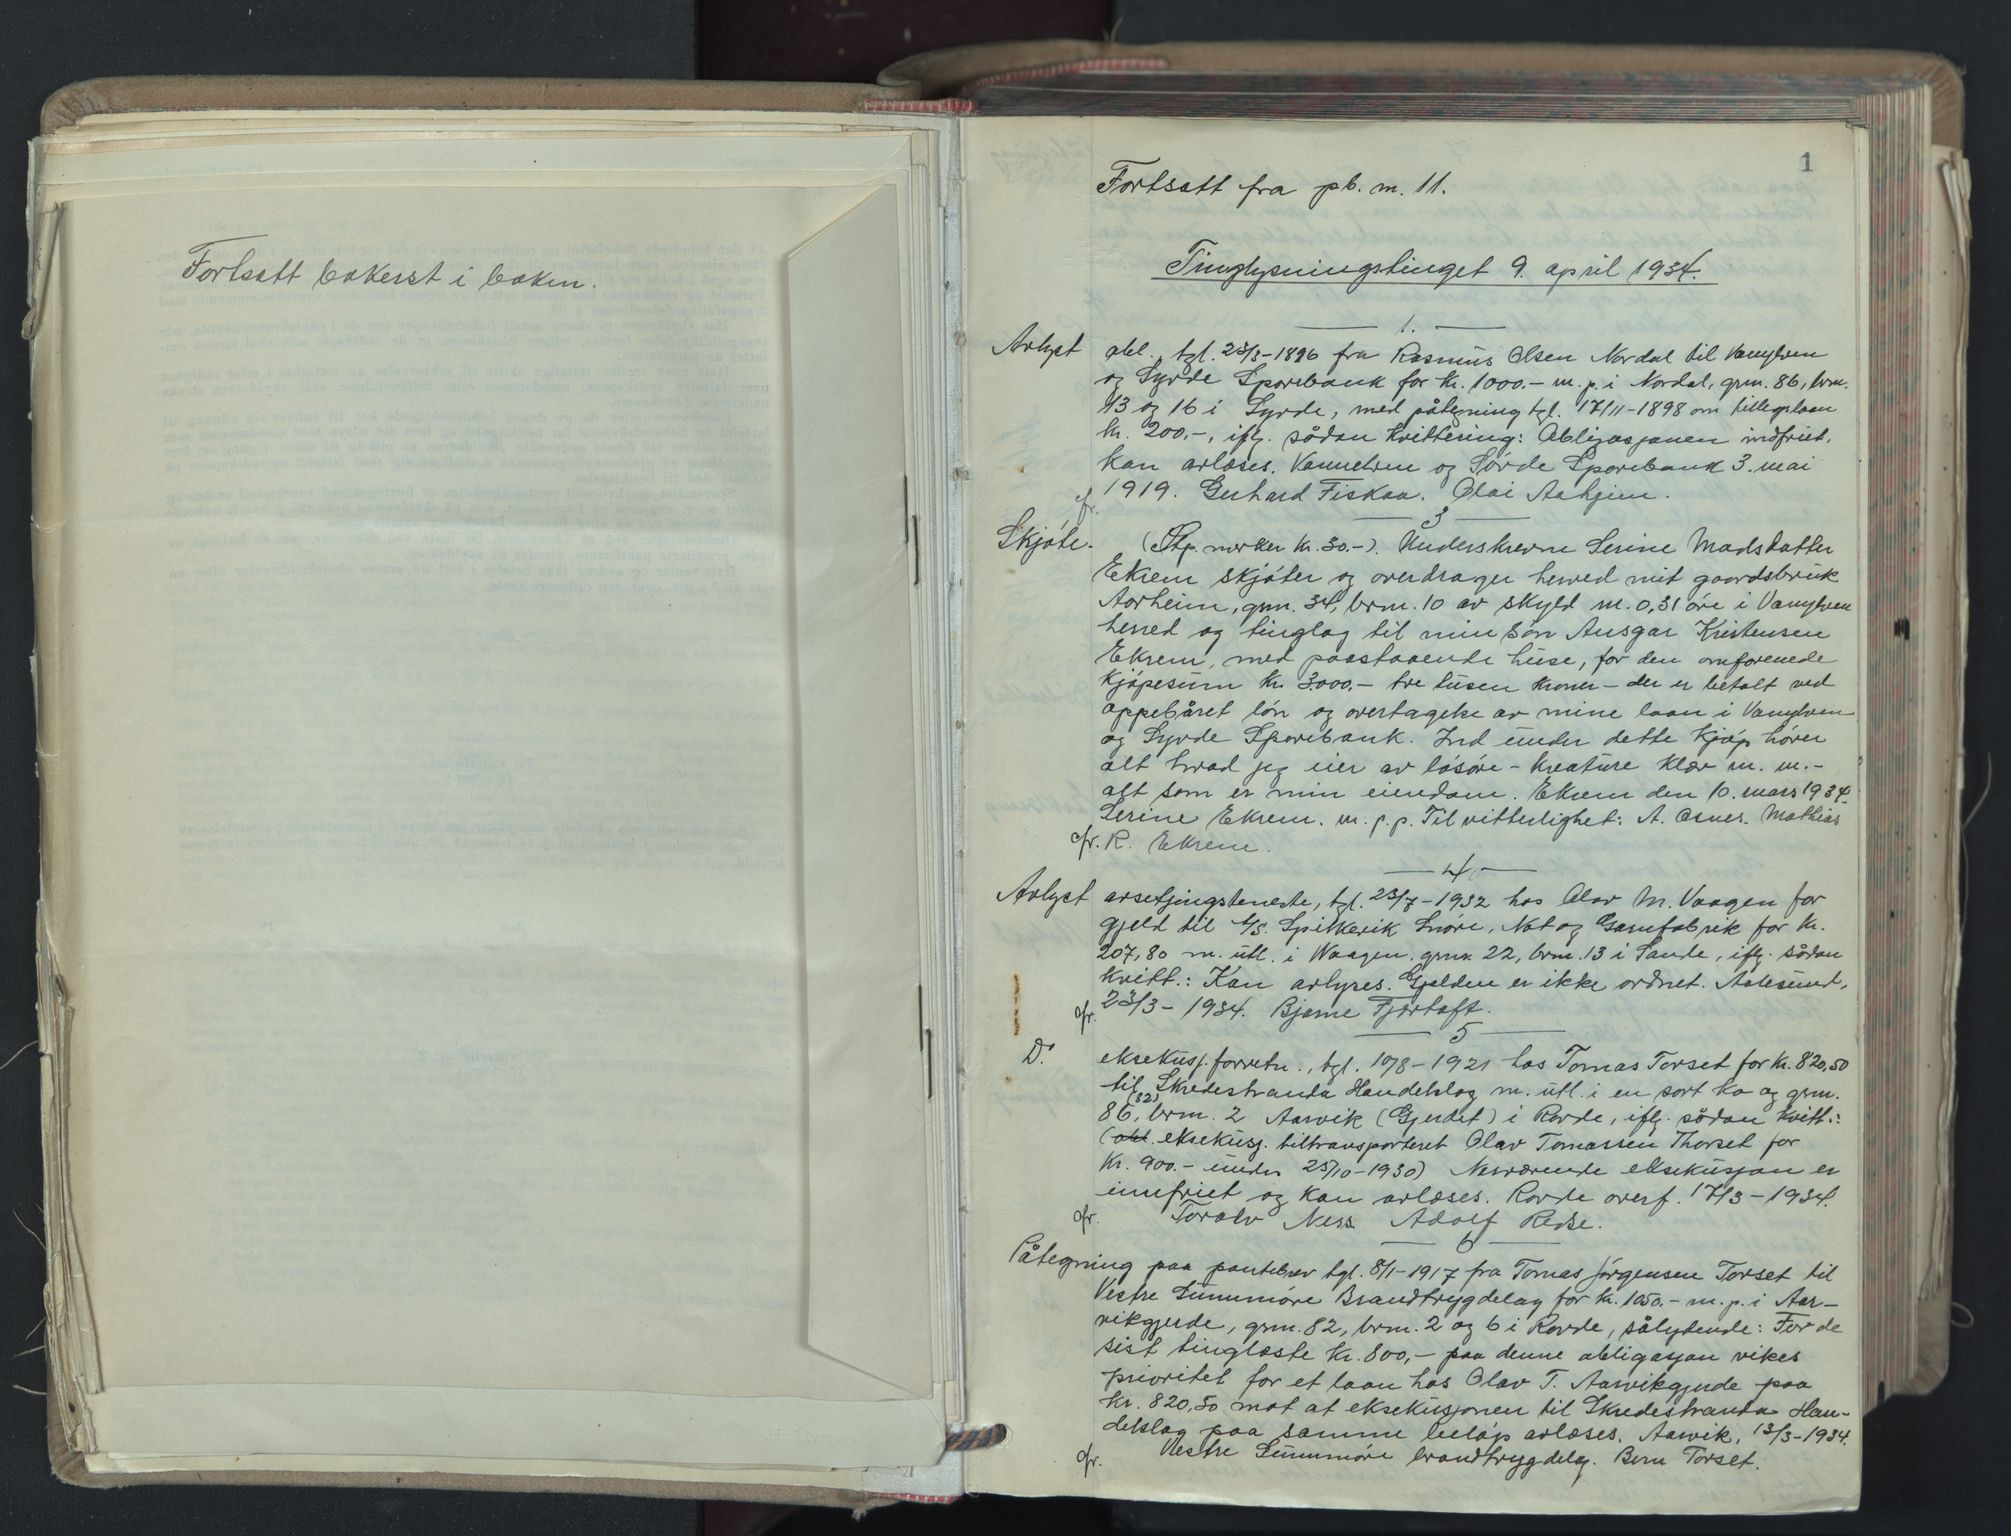 Fortsatt bakerst i boken.
1
Fortsatt fra pb. nr. 11.
Tinglysningstinget 9. april 1934.
1.
Avlyst obl. tgl. 23/3-1896 fra Rasmus Olsen Nordal til Vanylven
og Syvde Sparebank for kr. 1000.- m. p. i Nordal, grnr. 86, brnr.
13 og 16 i Syvde, med påtegning tgl. 17/11-1898 om tillegslaan
kr. 200,-, iflg. sådan kvittering: Obligasjonen indfriet,
kan avlæses. Vannelven og Sövde Sparebank 3. mai
cfr. 1919. Gerhard Fiskaa. Olai Aaheim.
3
Skjöte. (Stp. merker kr. 30.-). Underskrevne Serine Madsdatter
Ekrem skjöter og overdrager herved mit gaardsbruk
Aarheim, grnr. 34, brnr. 10 av skyld m. 0,31 öre i Vanylven
herred og tinglag til min sön Ansgar Kristensen
Ekrem, med paastaaende huse, for den omforenede
kjöpesum kr. 3000.- tre tusen kroner - der er betalt ved
oppebåret lön og overtagelse av mine laan i Vanylven
og Syvde Sparebank. Ind under dette kjöp hörer
alt hvad jeg eier av lösöre - kreature klær m. m. -
alt som er min eiendom. Ekrem den 10. mars 1934.
Serine Ekrem. m. p. p. Til vitterlighet: A. Osnes. Mathias
cfr. R. Ekrem.
4
Avlyst arsetjingsteneste, tgl. 23/7-1932 hos Olav M. Vaagen for
gjeld til A/S. Spilkevik Snöre, Not og Garnfabrik for kr.
207,80 m. utl. i Waagen. grnr. 22, brnr. 13 i Sande, iflg. sådan
kvitt.: Kan avlyses. Gjelden er ikke ordnet. Aalesund,
cfr. 23/3-1934. Bjarne Fjørtoft.
5
Do. eksekusj. forretn., tgl. 10/8-1921 hos Tomas Torset for kr. 820,50
til Skredestranda Handelslag m. utl. i en sort ko og grnr.
(82)
86, brnr. 2 Aarvik (Gjerdet) i Rovde, iflg. sådan kvitt.:
(obl. eksekusj. tiltransporteret Olav Tomassen Thorset for
kr. 900.- under 25/10-1930) Nærværende eksekusjon er
innfriet og kan avlæses. Rovde overf. 17/3-1934.
cfr. Toralv Ness Adolf Redse.
6
Påtegning paa pantebrev tgl. 8/1-1917 fra Tomas Jörgensen Torset til
Vestre Sunnmöre Brandtrygdelag for kr. 1050.- m. p. i Aar-
vikgjerde, grnr. 82, brnr. 2 og 6 i Rovde, sålydende: For de
sist tinglæste kr. 800,- paa denne obligasjon vikes
prioritet for et laan hos Olav T. Aarvikgjerde paa
kr. 820,50 mot at eksekusjonen til Skredestranda Han-
delslag paa samme belöp avlæses. Aarvik, 13/3-1934.
cfr. Vestre Sunnmöre brandtrygdelag. Bern Torset.